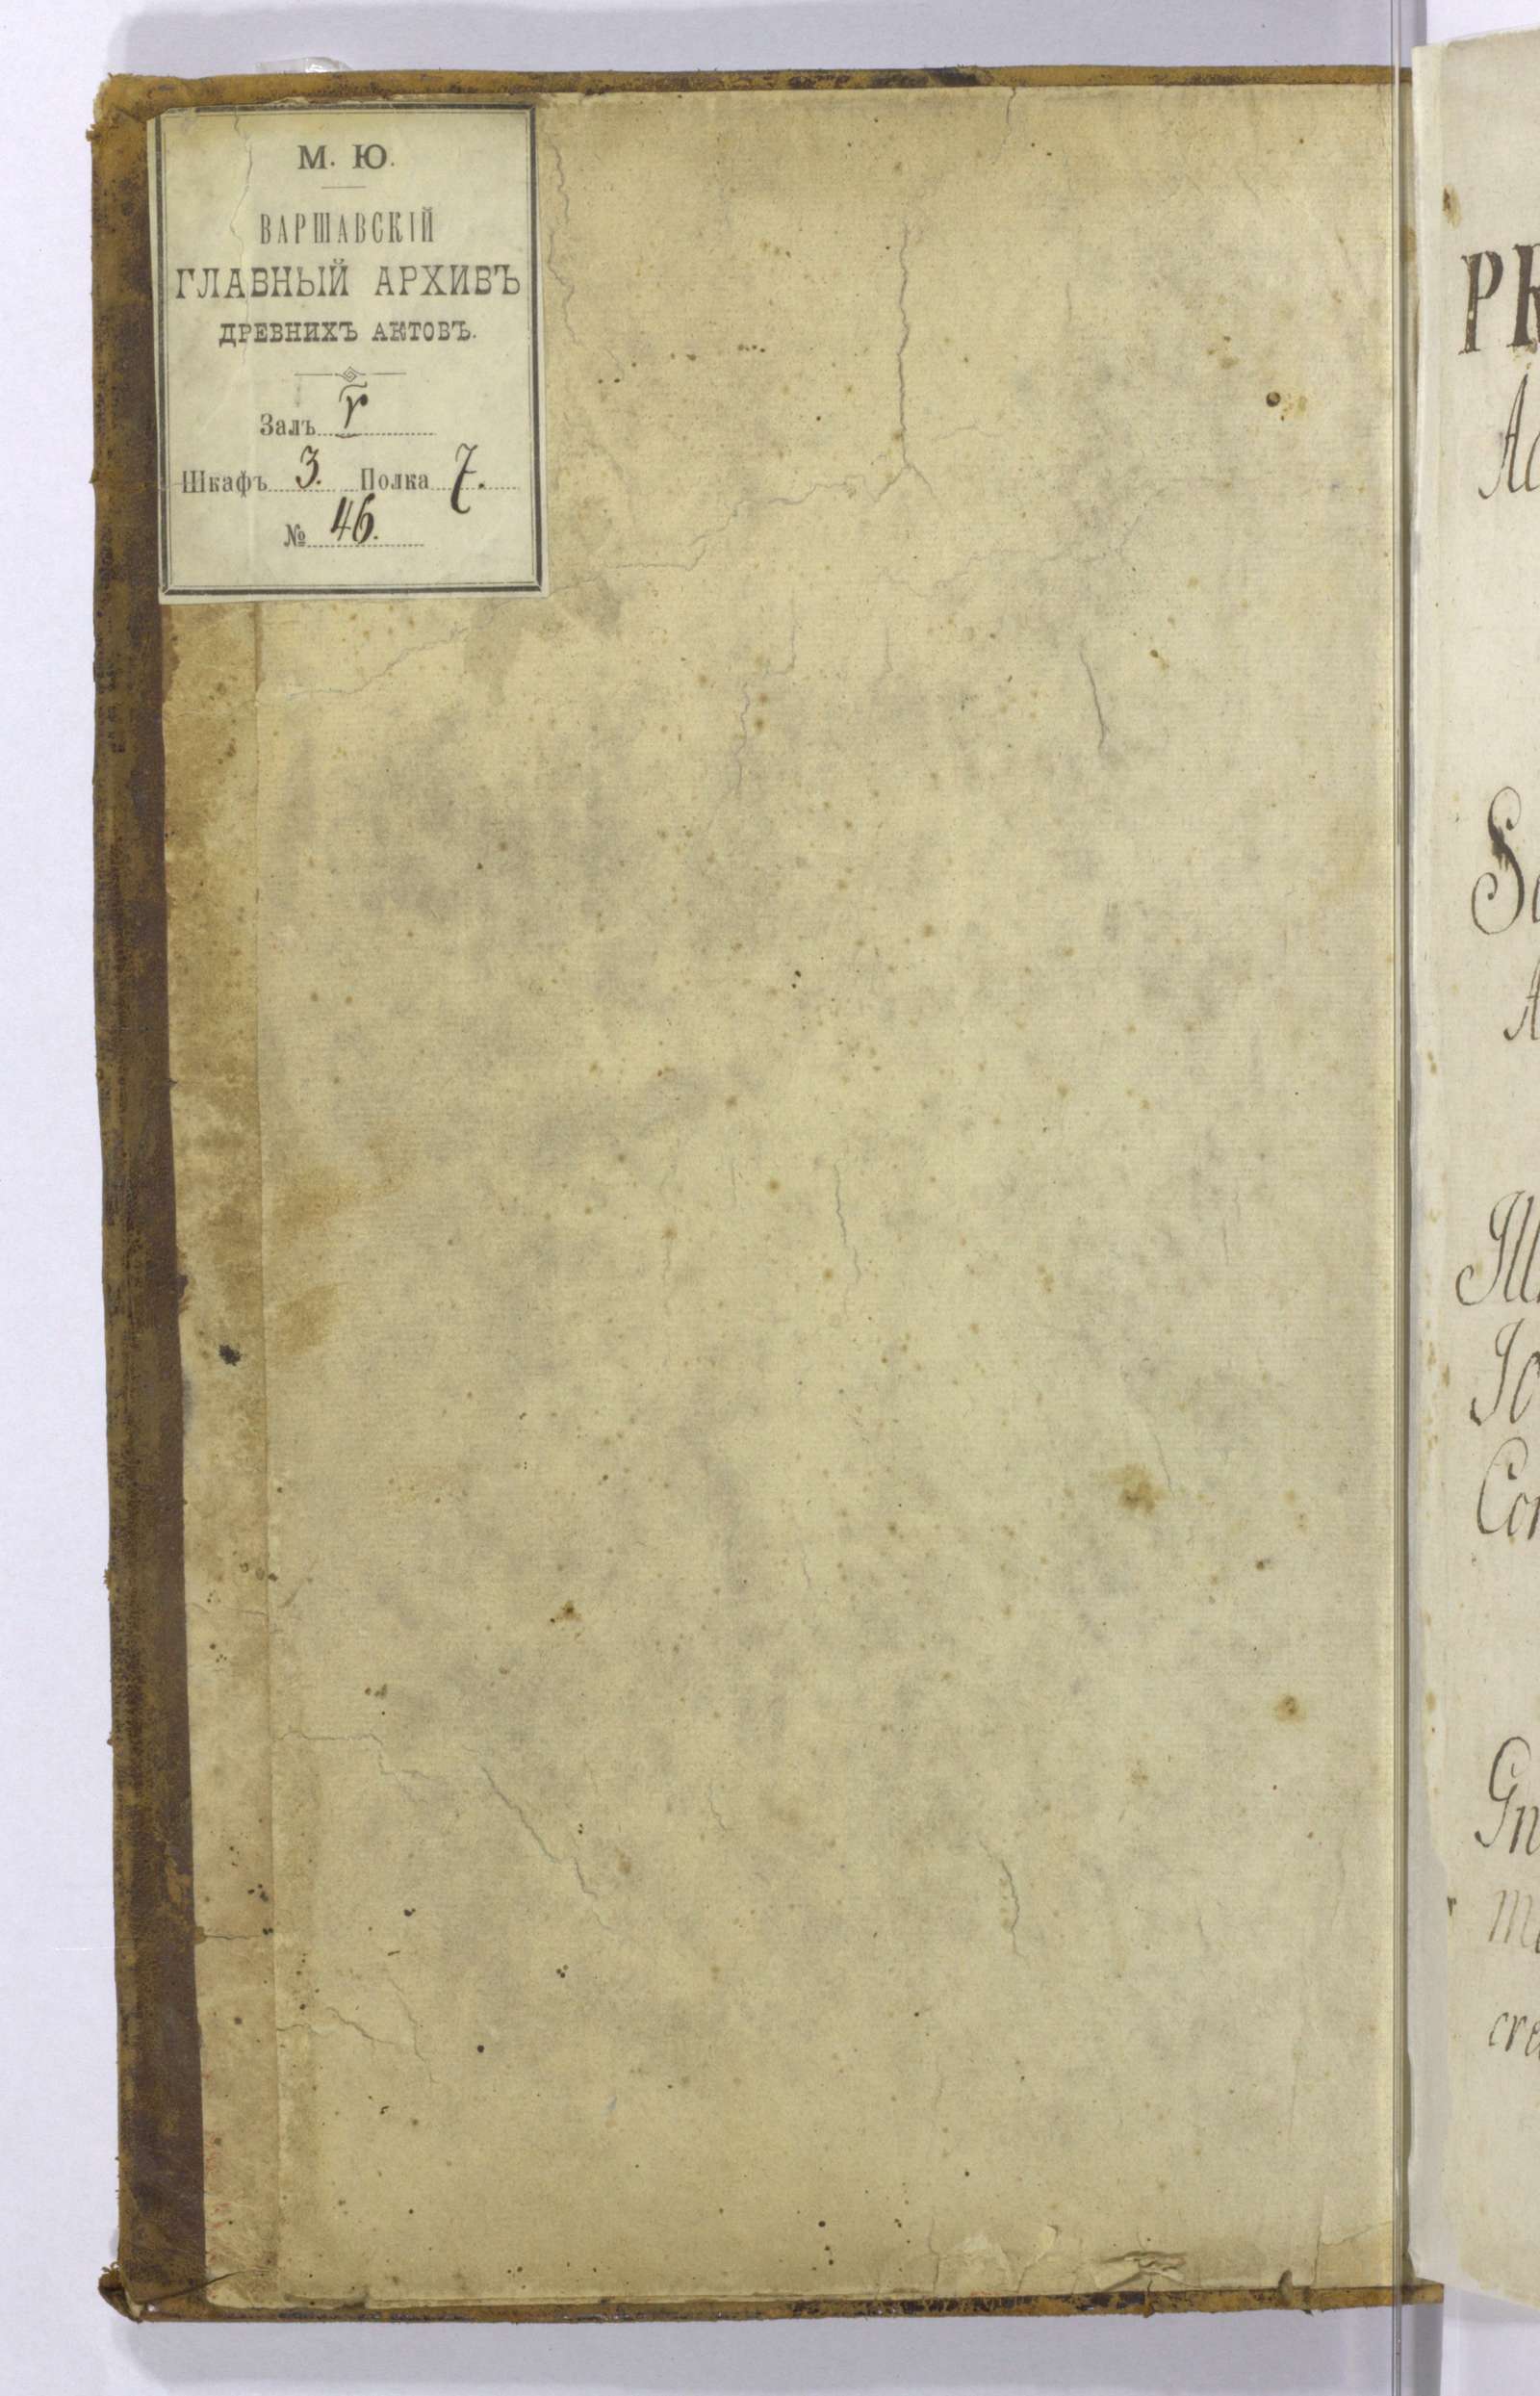 М. Ю.
ВАРШАВСКІЙ
ГЛАВНЫЙ АРХИВЪ
ДРЕВНИХЪ АКТОВЪ.
Залъ
Шкафъ 3. Полка 7.
№ 46.
PR
Ac
Se
A
Ill
Jo
Con
Gn
ma
cre